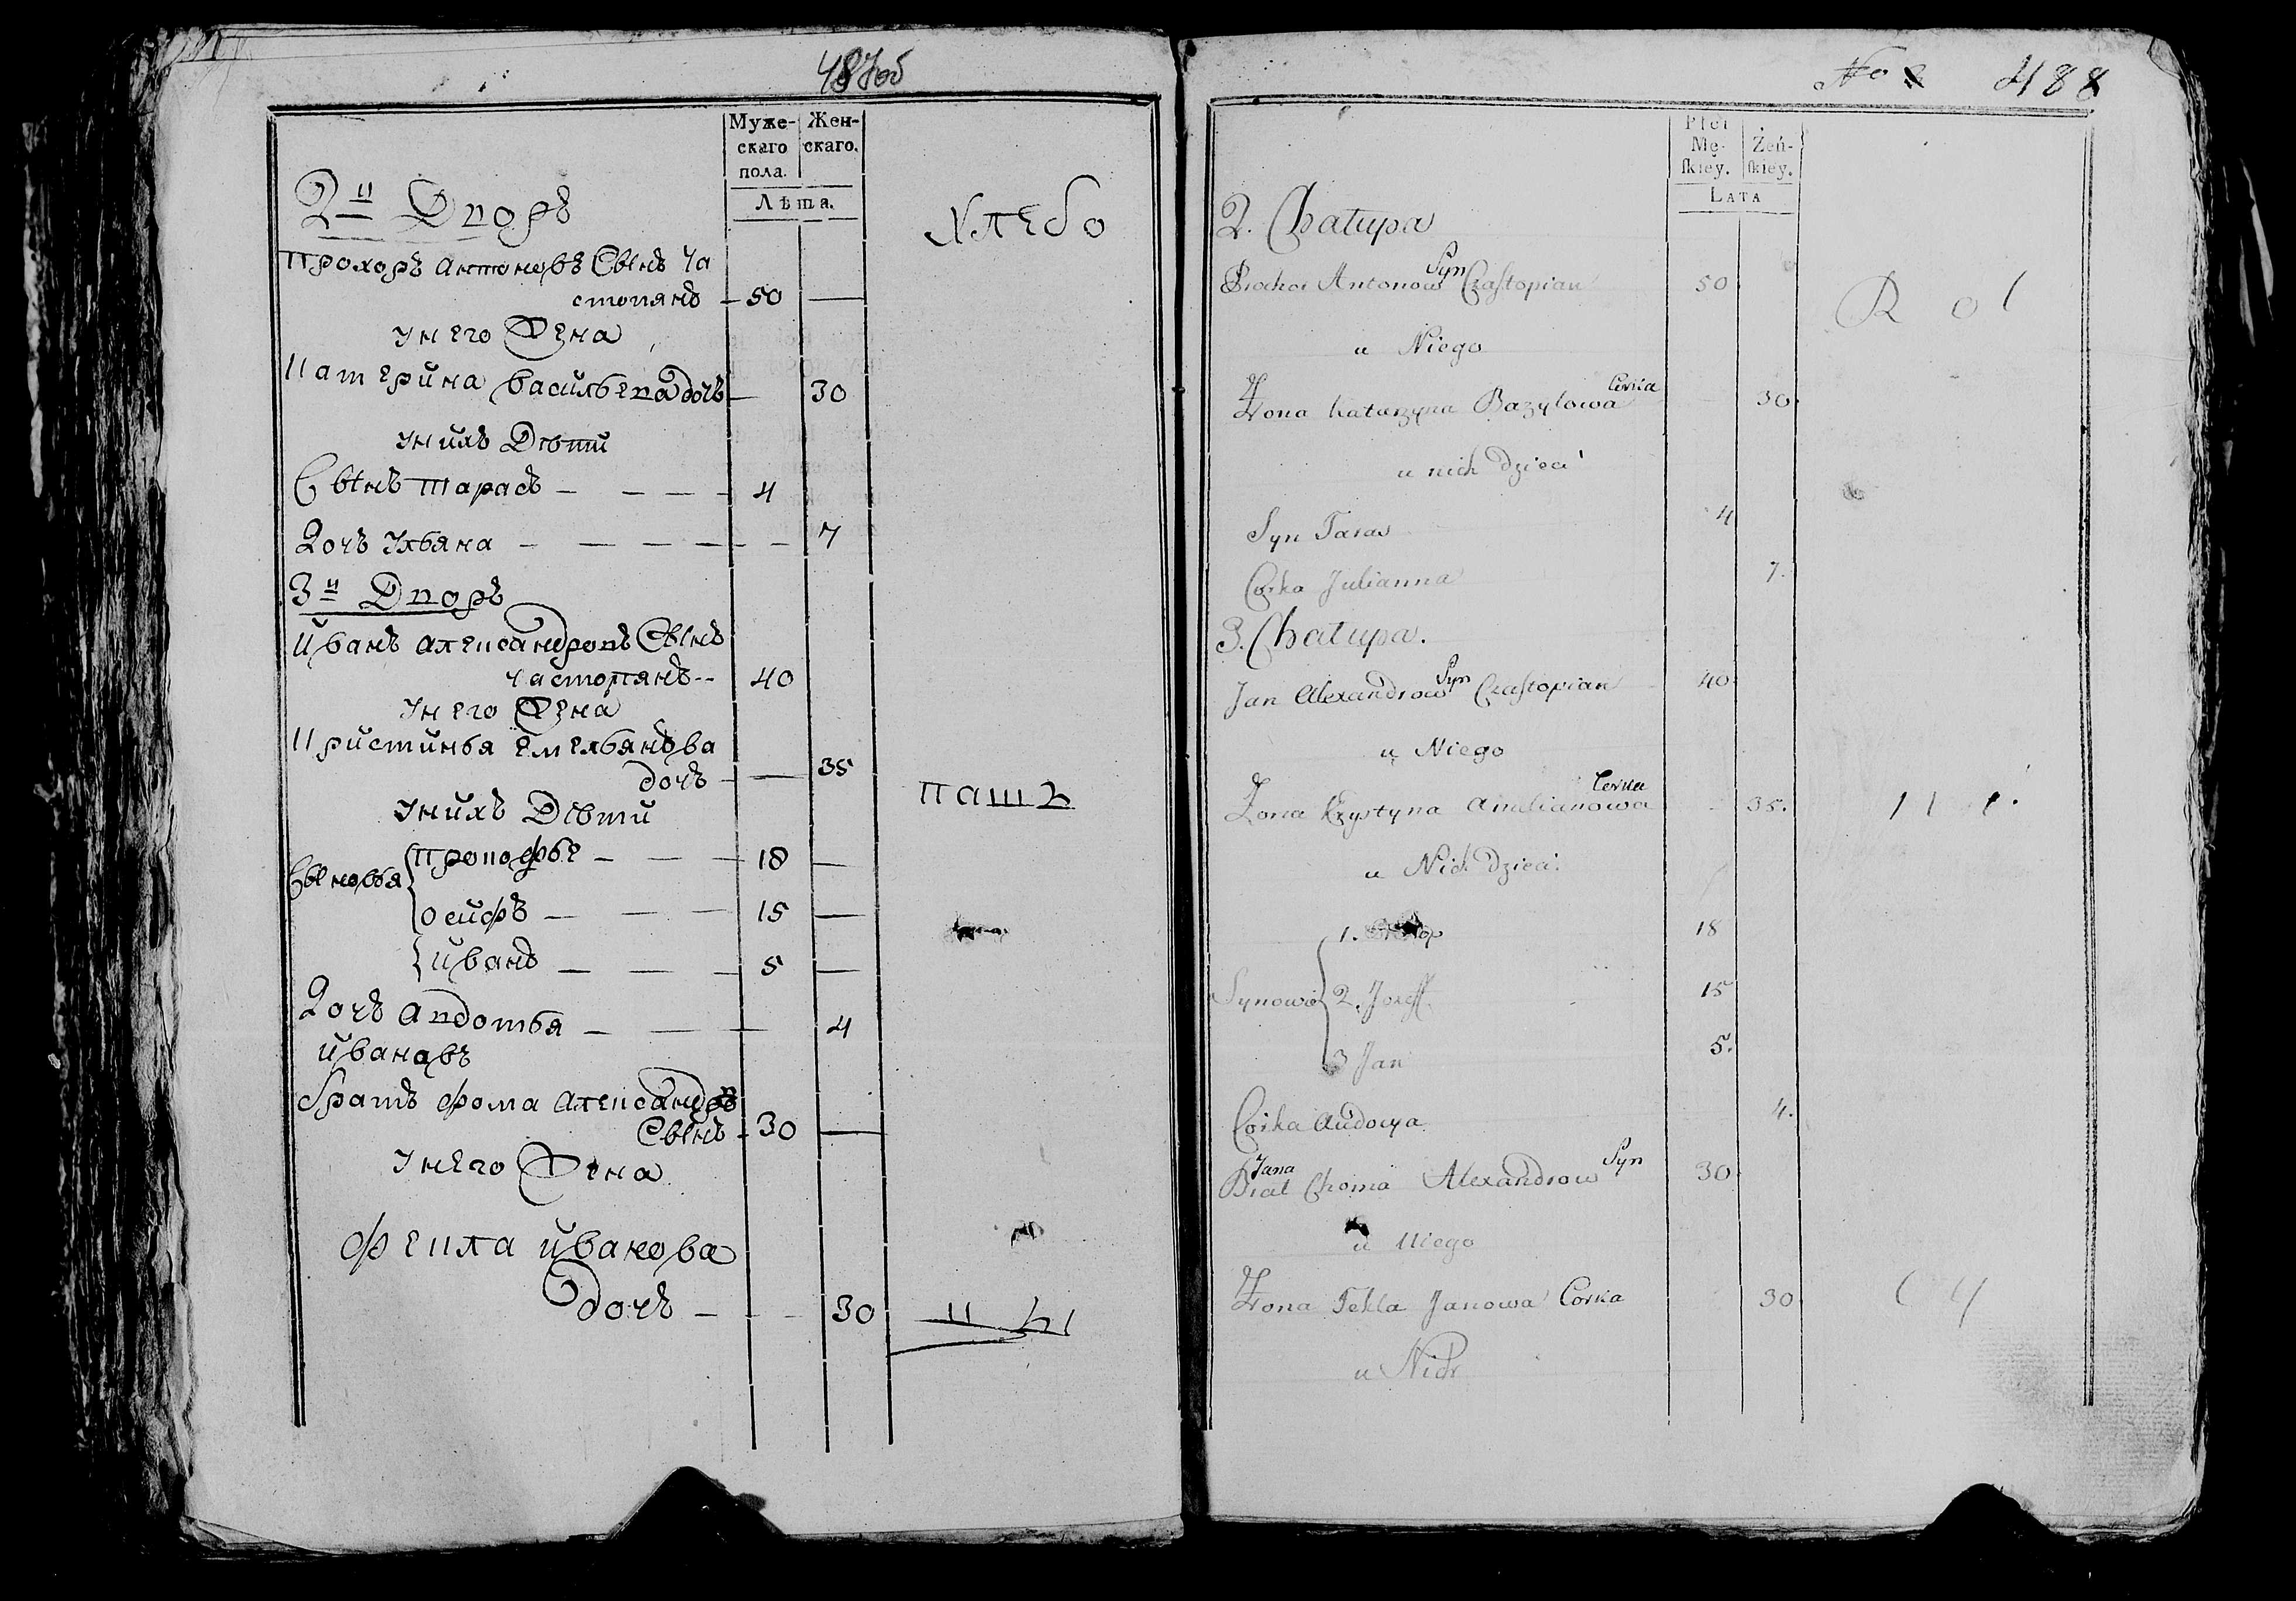 487об
Муже-
скаго
пола.
Жен-
скаго.
Лѣта.
2й Дворъ
Хлебо
Прохоръ Антоновъ Сынъ Ча
стопянъ - 50 —
У него Жена
Катерина Васильева дочь — 30
У нихъ Дѣти
Сынъ Тарасъ — — — — 4
Дочь Ульяна — — — — — 7
3й Дворъ
Иванъ Александровъ Сынъ
Частопянъ -- 40
У него Жена
Кристинья Емельянова
дочь — — 35
пашъ
У нихъ Дѣти
Сыновья
Прокофье — — — 18 —
Осифъ — — — 15 —
Иванъ — — — 5 —
Дочь Авдотья — — — 4
Ивановъ
братъ Фома Александровъ
Сынъ - 30 —
У него Жена
Фекла Иванова
дочь — - — 30
цы
No 488
Płci
Mę-
ſkiey.
Żeń-
ſkiey.
LATA
2. Chałupa
Prochor Antonow Syn Czaſtopian 50
R o l
u Niego
Żona Katarzyna Bazylowa Corka 30.
u nich Dzieci
Syn Taras 4
Corka Julianna 7.
3. Chałupa.
Jan Alexandrow Syn Czaſtopian 40.
u Niego
Żona Krzystyna Amilianowa Corka 35.
u Nich Dzieci.
1. 18
Synowie 2. Joseff. 15
3 Jan 5.
Corka Audocya 4.
Jana
Brat Choma Alexandrow Syn 30
u Niego
Żona Tekla Janowa Corka 30
u Nich